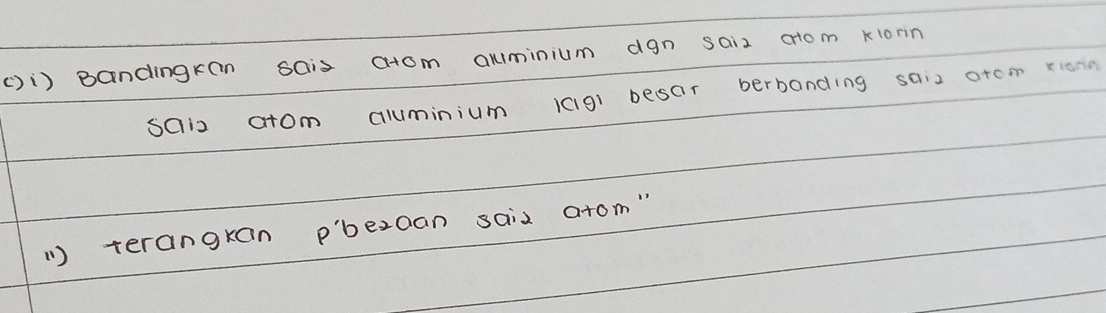 c)i) Bandingkan sais atom aluminium dgn saiz atom klorin
saiz atom aluminium lagi besar berbanding saiz atom klorin
ii) terangkan p'bezaan saiz atom"